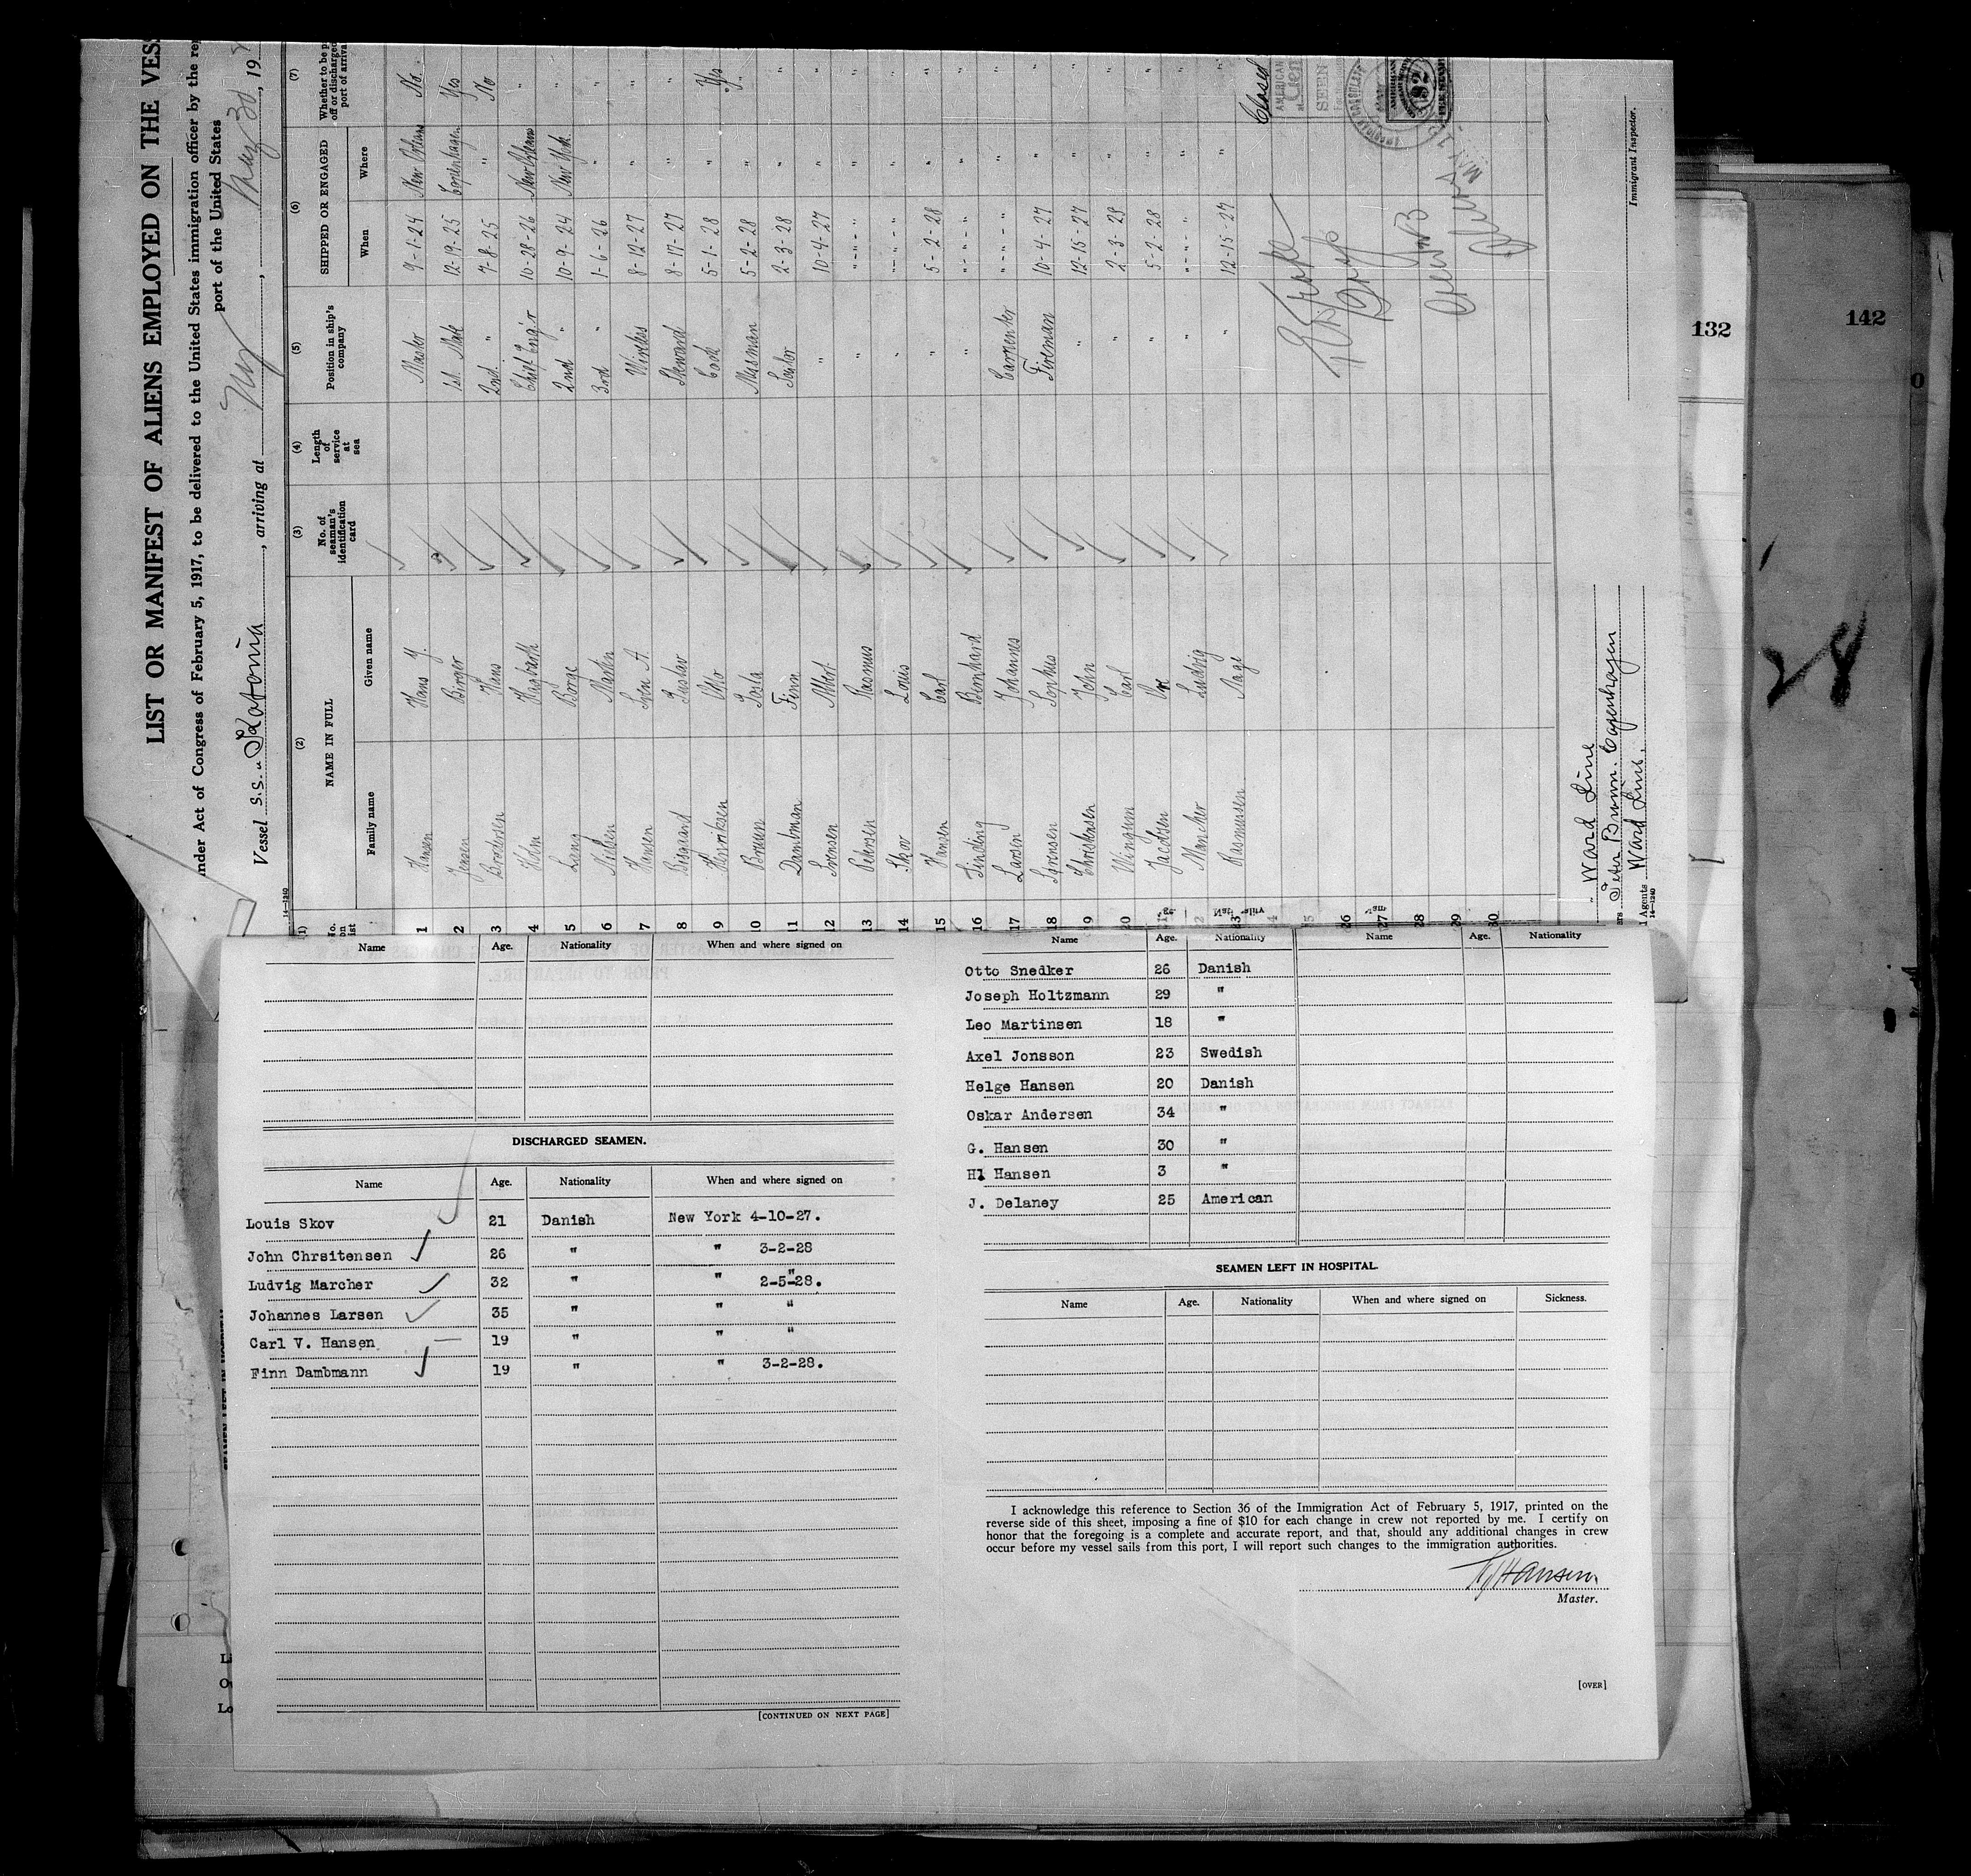 LIST OR MANIFEST OF ALIENS EMPLOYED ON THE VESS
nder Act of Congress of February 5, 1917, to be delivered to the United States immigration officer by the re
port of the United States
Vessel S.S. , arriving at , May 3d , 19
(1) (2) (3) (4) (5) (6) (7)
NAME IN FULL
No. of seaman's identification card
Length of service at sea
Position in ship's company
SHIPPED OR ENGAGED
Whether to be p
off or discharged
port of arriva
Family name Given name When Where
1 Hansen Hans Y. Master 9-1-24 New Orleans No.
2 Jensen Birger 1st. Mate 12-19-25 Copenhagen Yes
3 Brodersen Hans 2nd. " 7-8-25 " No
4 Holm Hagbarth Chief Eng'r 10-28-26 New Orleans "
5 Lang Borge 2nd " 10-9-24 New York "
6 Nielsen Marten 3rd " 1-6-26 " "
7 Hansen Sven A. Wireless 8-12-27 " "
8 Bisgaard Gustav Steward 8-17-27 " "
9 Henriksen Otto Cook 5-1-28 " Yes
10 Bruun Gosta Messman 5-2-28 " "
11 Dambman Finn Sailor 2-3-28 " "
12 Sorensen Albert " 10-4-27 " "
13 Petersen Rasmus " "-"-" " "
14 Skov Louis " "-"-" " "
15 Hansen Carl " 5-2-28 " "
16 Linding Bernhard " "-"-" " "
17 Larsen Johannes Carpenter "-"-" " "
18 Sørensen Sophus Fireman 10-4-27 " "
19 Christensen John " 12-15-27 " "
20 Winghen Carl " 2-3-28 " "
Jacobsen " 5-2-28 " "
Marcher Ludvig " "-"-" " "
23 Rasmussen Aage " 12-15-27 " "
26
27
28
29
30
Closed
AMERICAN
SEEN
$2
Immigrant Inspector.
Ward Line
Peter Brunn. Copenhagen
Agents Ward Line.
14—1240
132
142
28
Name Age. Nationality When and where signed on
DISCHARGED SEAMEN.
Name Age. Nationality When and where signed on
Louis Skov 21 Danish New York 4-10-27.
John Chrsitensen 26 " " 3-2-28
Ludvig Marcher 32 " " 2-5-28.
Johannes Larsen 35 " " "
Carl V. Hansen 19 " " "
Finn Dambmann 19 " " 3-2-28.
[CONTINUED ON NEXT PAGE]
Name Age. Nationality Name Age. Nationality
Otto Snedker 26 Danish
Joseph Holtzmann 29 "
Leo Martinsen 18 "
Axel Jonsson 23 Swedish
Helge Hansen 20 Danish
Oskar Andersen 34 "
G. Hansen 30 "
Hl Hansen 3 "
J. Delaney 25 American
SEAMEN LEFT IN HOSPITAL.
Name Age. Nationality When and where signed on Sickness.
I acknowledge this reference to Section 36 of the Immigration Act of February 5, 1917, printed on the
reverse side of this sheet, imposing a fine of $10 for each change in crew not reported by me. I certify on
honor that the foregoing is a complete and accurate report, and that, should any additional changes in crew
occur before my vessel sails from this port, I will report such changes to the immigration authorities.
HyHansen
Master.
[OVER]